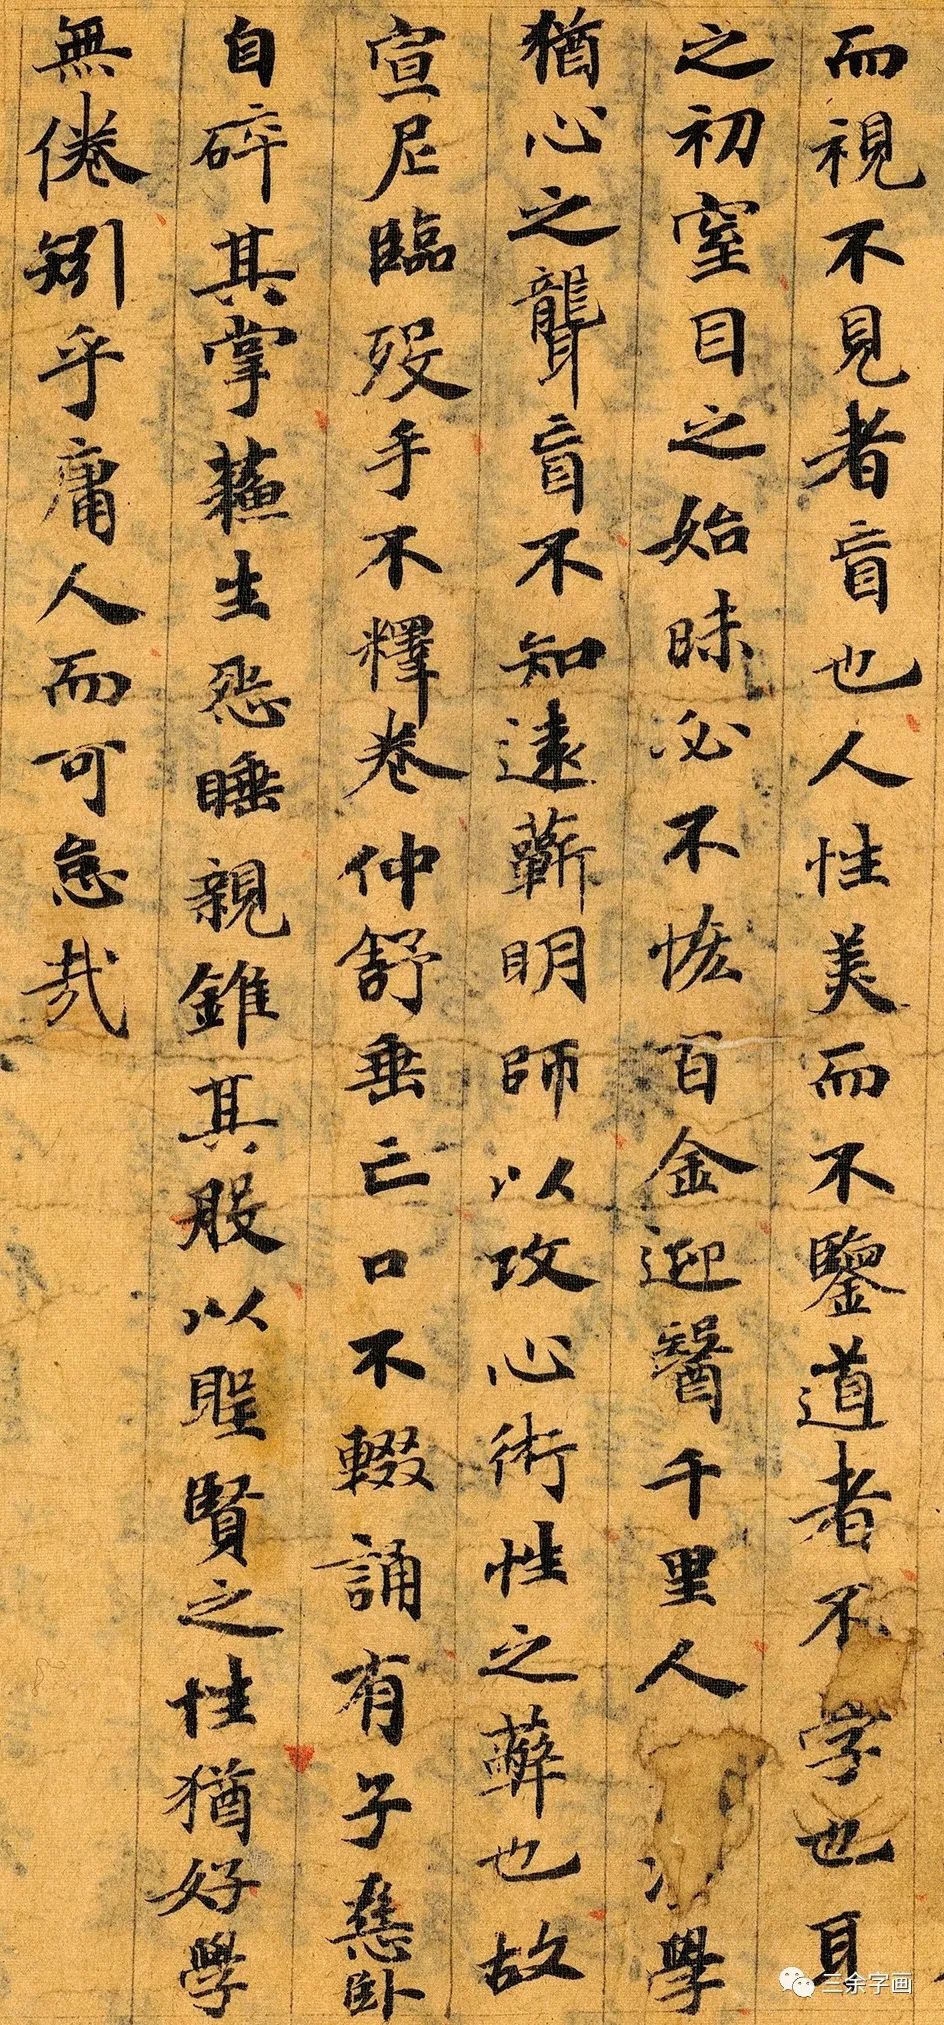 而視不見者盲也人性美而不鑒道者不学也耳
之初窒目之始昧必不恡百金迎醫千里人學
猶心之聾盲不知遠蘄明師以攻心術性之薜也故
宣尼臨歿手不釋卷仲舒垂亡口不輟誦有子惡臥
自碎其掌蘓生怨睡親錐其股以聖賢之性猶好學
無倦矧乎庸人而可怠哉
三余字画